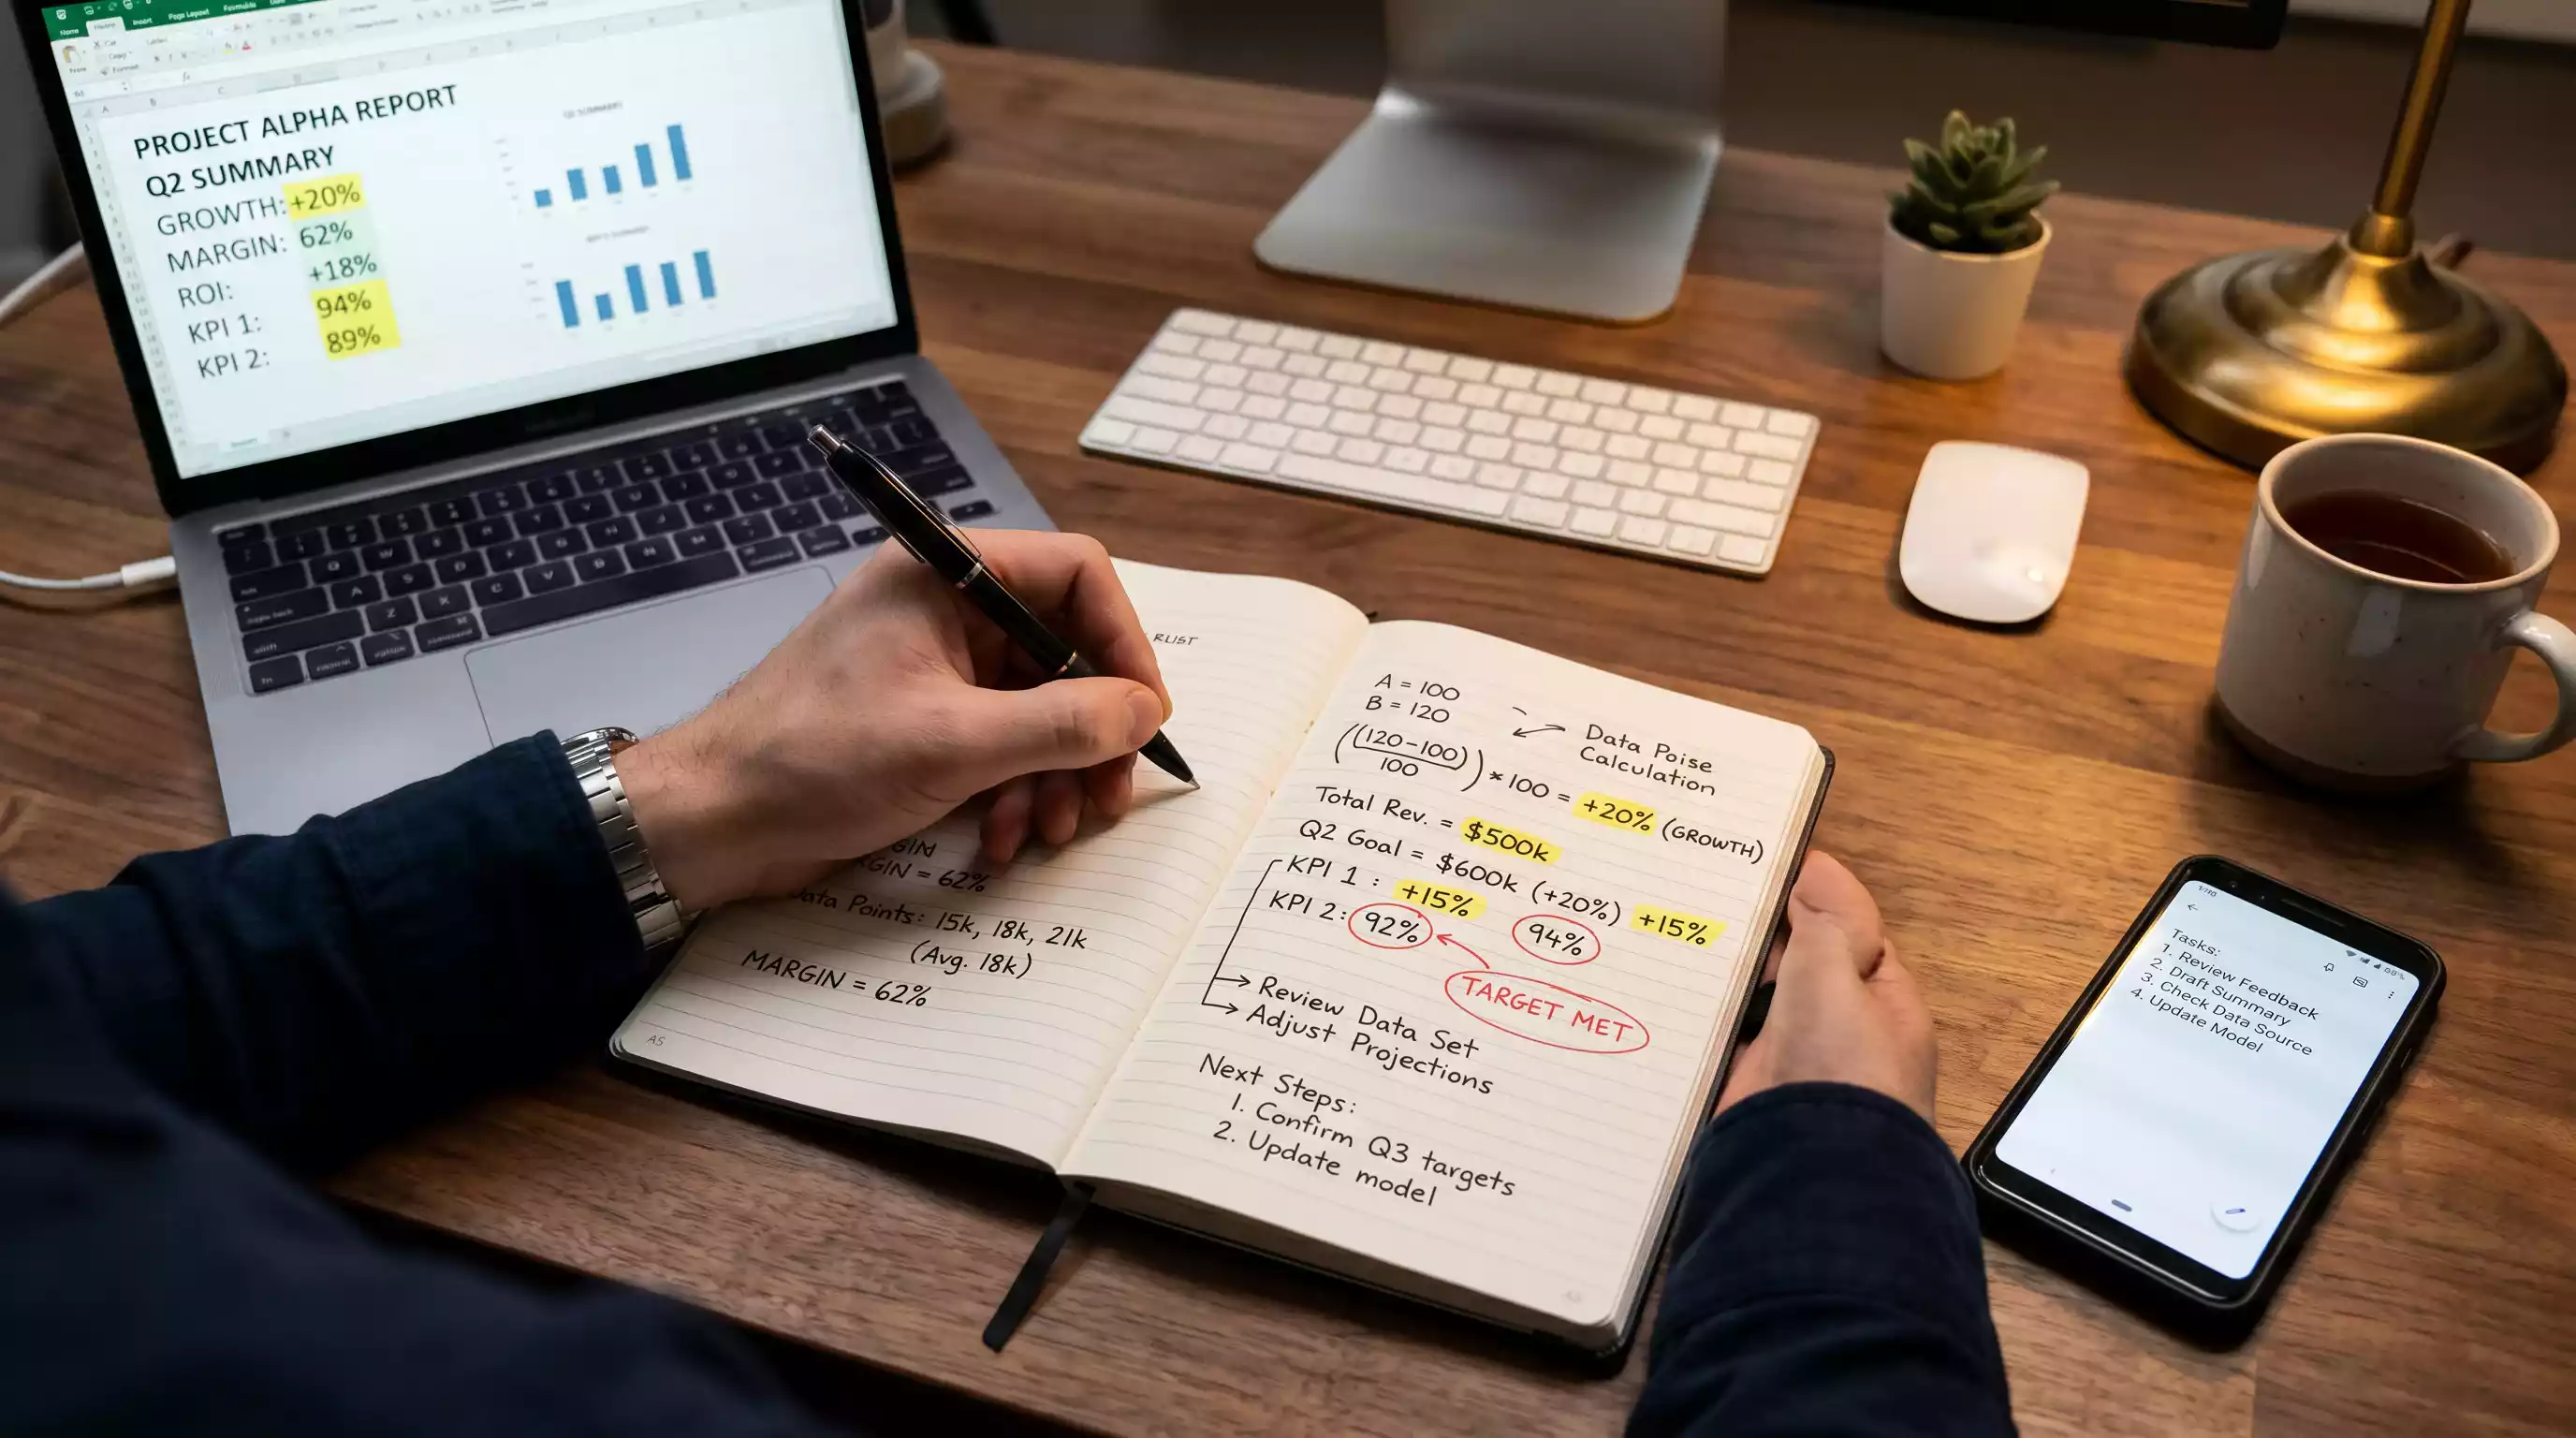 Home Insert Page Layout Formulas
PROJECT ALPHA REPORT
Q2 SUMMARY
GROWTH: +20%
MARGIN: 62%
ROI: +18%
KPI 1: 94%
KPI 2: 89%
Q2 SUMMARY
RUST
GIN
RGIN = 62%
Data Points: 15k, 18k, 21k
(Avg. 18k)
MARGIN = 62%
A5
A = 100
B = 120
Data Poise
Calculation
((120-100)/100) * 100 = +20% (GROWTH)
Total Rev. = $500k
Q2 Goal = $600k (+20%) +15%
KPI 1 : +15%
KPI 2: 92% 94%
TARGET MET
Review Data Set
Adjust Projections
Next Steps:
1. Confirm Q3 targets
2. Update model
Tasks:
1. Review Feedback
2. Draft Summary
3. Check Data Source
4. Update Model